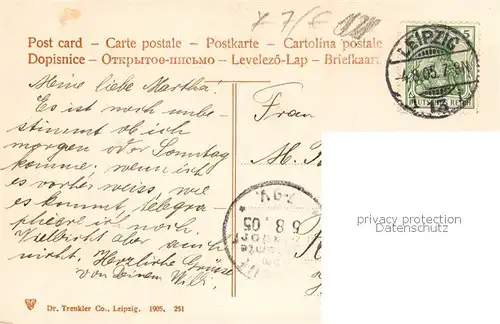 Post card – Carte postale – Postkarte – Cartolina postale
Dopisnice – Открытое-письмо – Levelező-Lap – Briefkaart
LEIPZIG
4.8.05. 7-8N
13
5
DEUTSCHES REICH
Meine liebe Martha!
Es ist noch unbe-
stimmt ob ich
morgen oder Sonntag
komme. wenn ich
es vorher weiss, wie
es kommt, telegra-
phiere ich noch.
Vielleicht aber auch
nicht. Herzliche Grüsse
von Deinem Willi.
Frau
M.
5.8.05
privacy protection
Datenschutz
Dr. Trenkler Co., Leipzig. 1905. 251